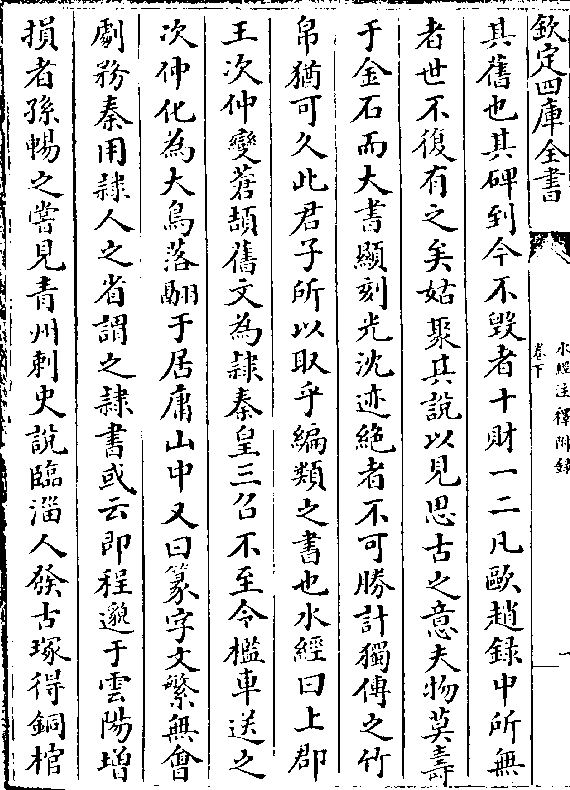 欽定四庫全書
水經注釋附錄
卷下
一
其舊也其碑到今不毀者十財一二凡歐趙録中所無
者世不復有之矣姑聚其說以見思古之意夫物莫壽
于金石而大書顯刻光沈迹絶者不可勝計獨傳之竹
帛猶可久此君子所以取乎編類之書也水經曰上郡
王次仲變蒼頡舊文為隷秦皇三召不至令檻車送之
次仲化為大鳥落翮于居庸山中又曰篆字文繁無會
劇務秦用隷人之省謂之隷書或云即程邈于雲陽增
損者孫暢之嘗見青州刺史說臨淄人發古塚得銅棺